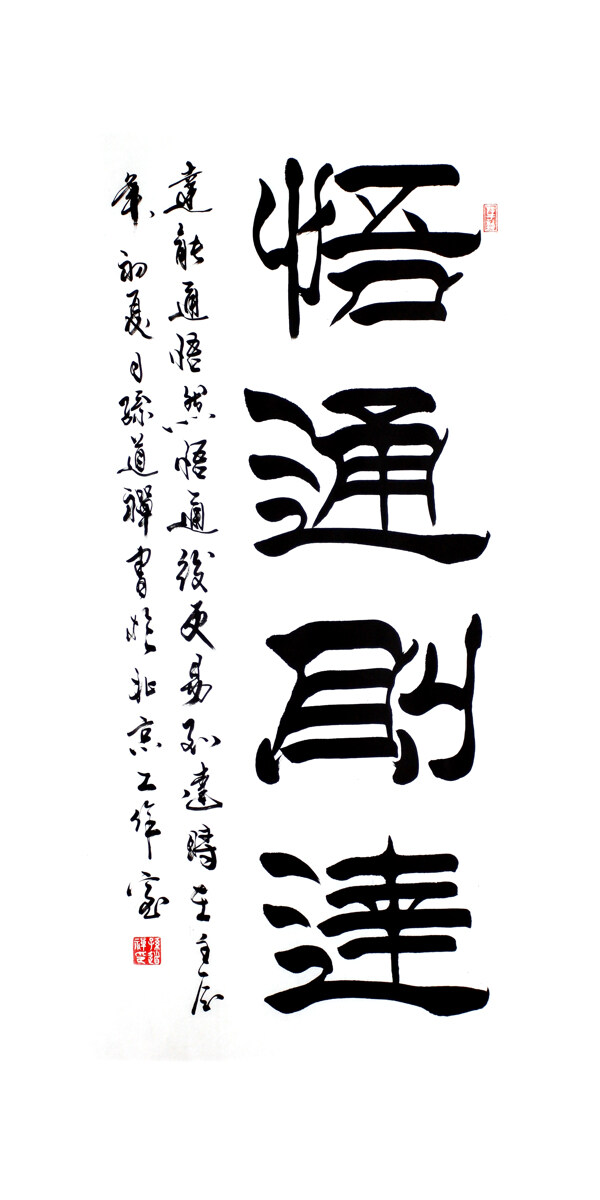 悟通則達
達能通悟然悟通後更易到達時在壬辰
年初夏月孫道禪書於北京工作室